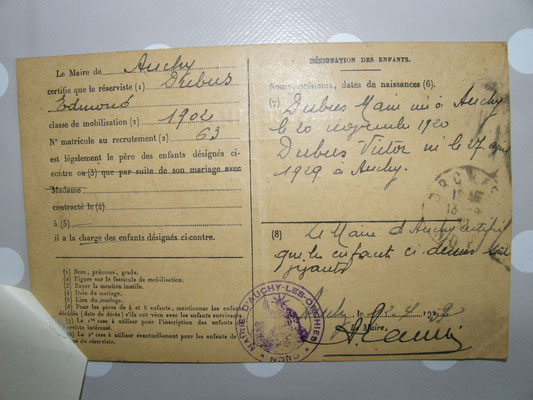 Le Maire de Auchy
certifie que le réserviste (1) Dubus
Edmond
classe de mobilisation (2) 1902
N° matricule au recrutement (2) 63
est légalement le père des enfants désignés ci-
contre ou (3) que par suite de son mariage avec
Madame
contracté le (4)
à (5)
il a la charge des enfants désignés ci-contre.
(1) Nom, prénoms, grade.
(2) Figure sur le fascicule de mobilisation.
(3) Rayer la mention inutile.
(4) Date du mariage.
(5) Lieu du mariage.
(6) Pour les pères de 4 et 6 enfants, mentionner les enfants
décédés (date du décès) s'ils ont vécu avec les enfants survivants
(7) La 1re case à utiliser pour l'inscription des enfants
intéressé.
(8) La 2e case à utiliser éventuellement pour les enfants
de réserviste.
DÉSIGNATION DES ENFANTS.
Noms, prénoms, dates de naissances (6).
(7) Dubus né à Auchy
le 20 novembre 1920
Dubus Victor né le 27
1929 à Auchy.
(8) Le Maire d'Auchy certifie
que les enfants ci-dessus sont
vivants
Auchy le
Le Maire,
MAIRIE D'AUCHY-LES-ORCHIES
NORD